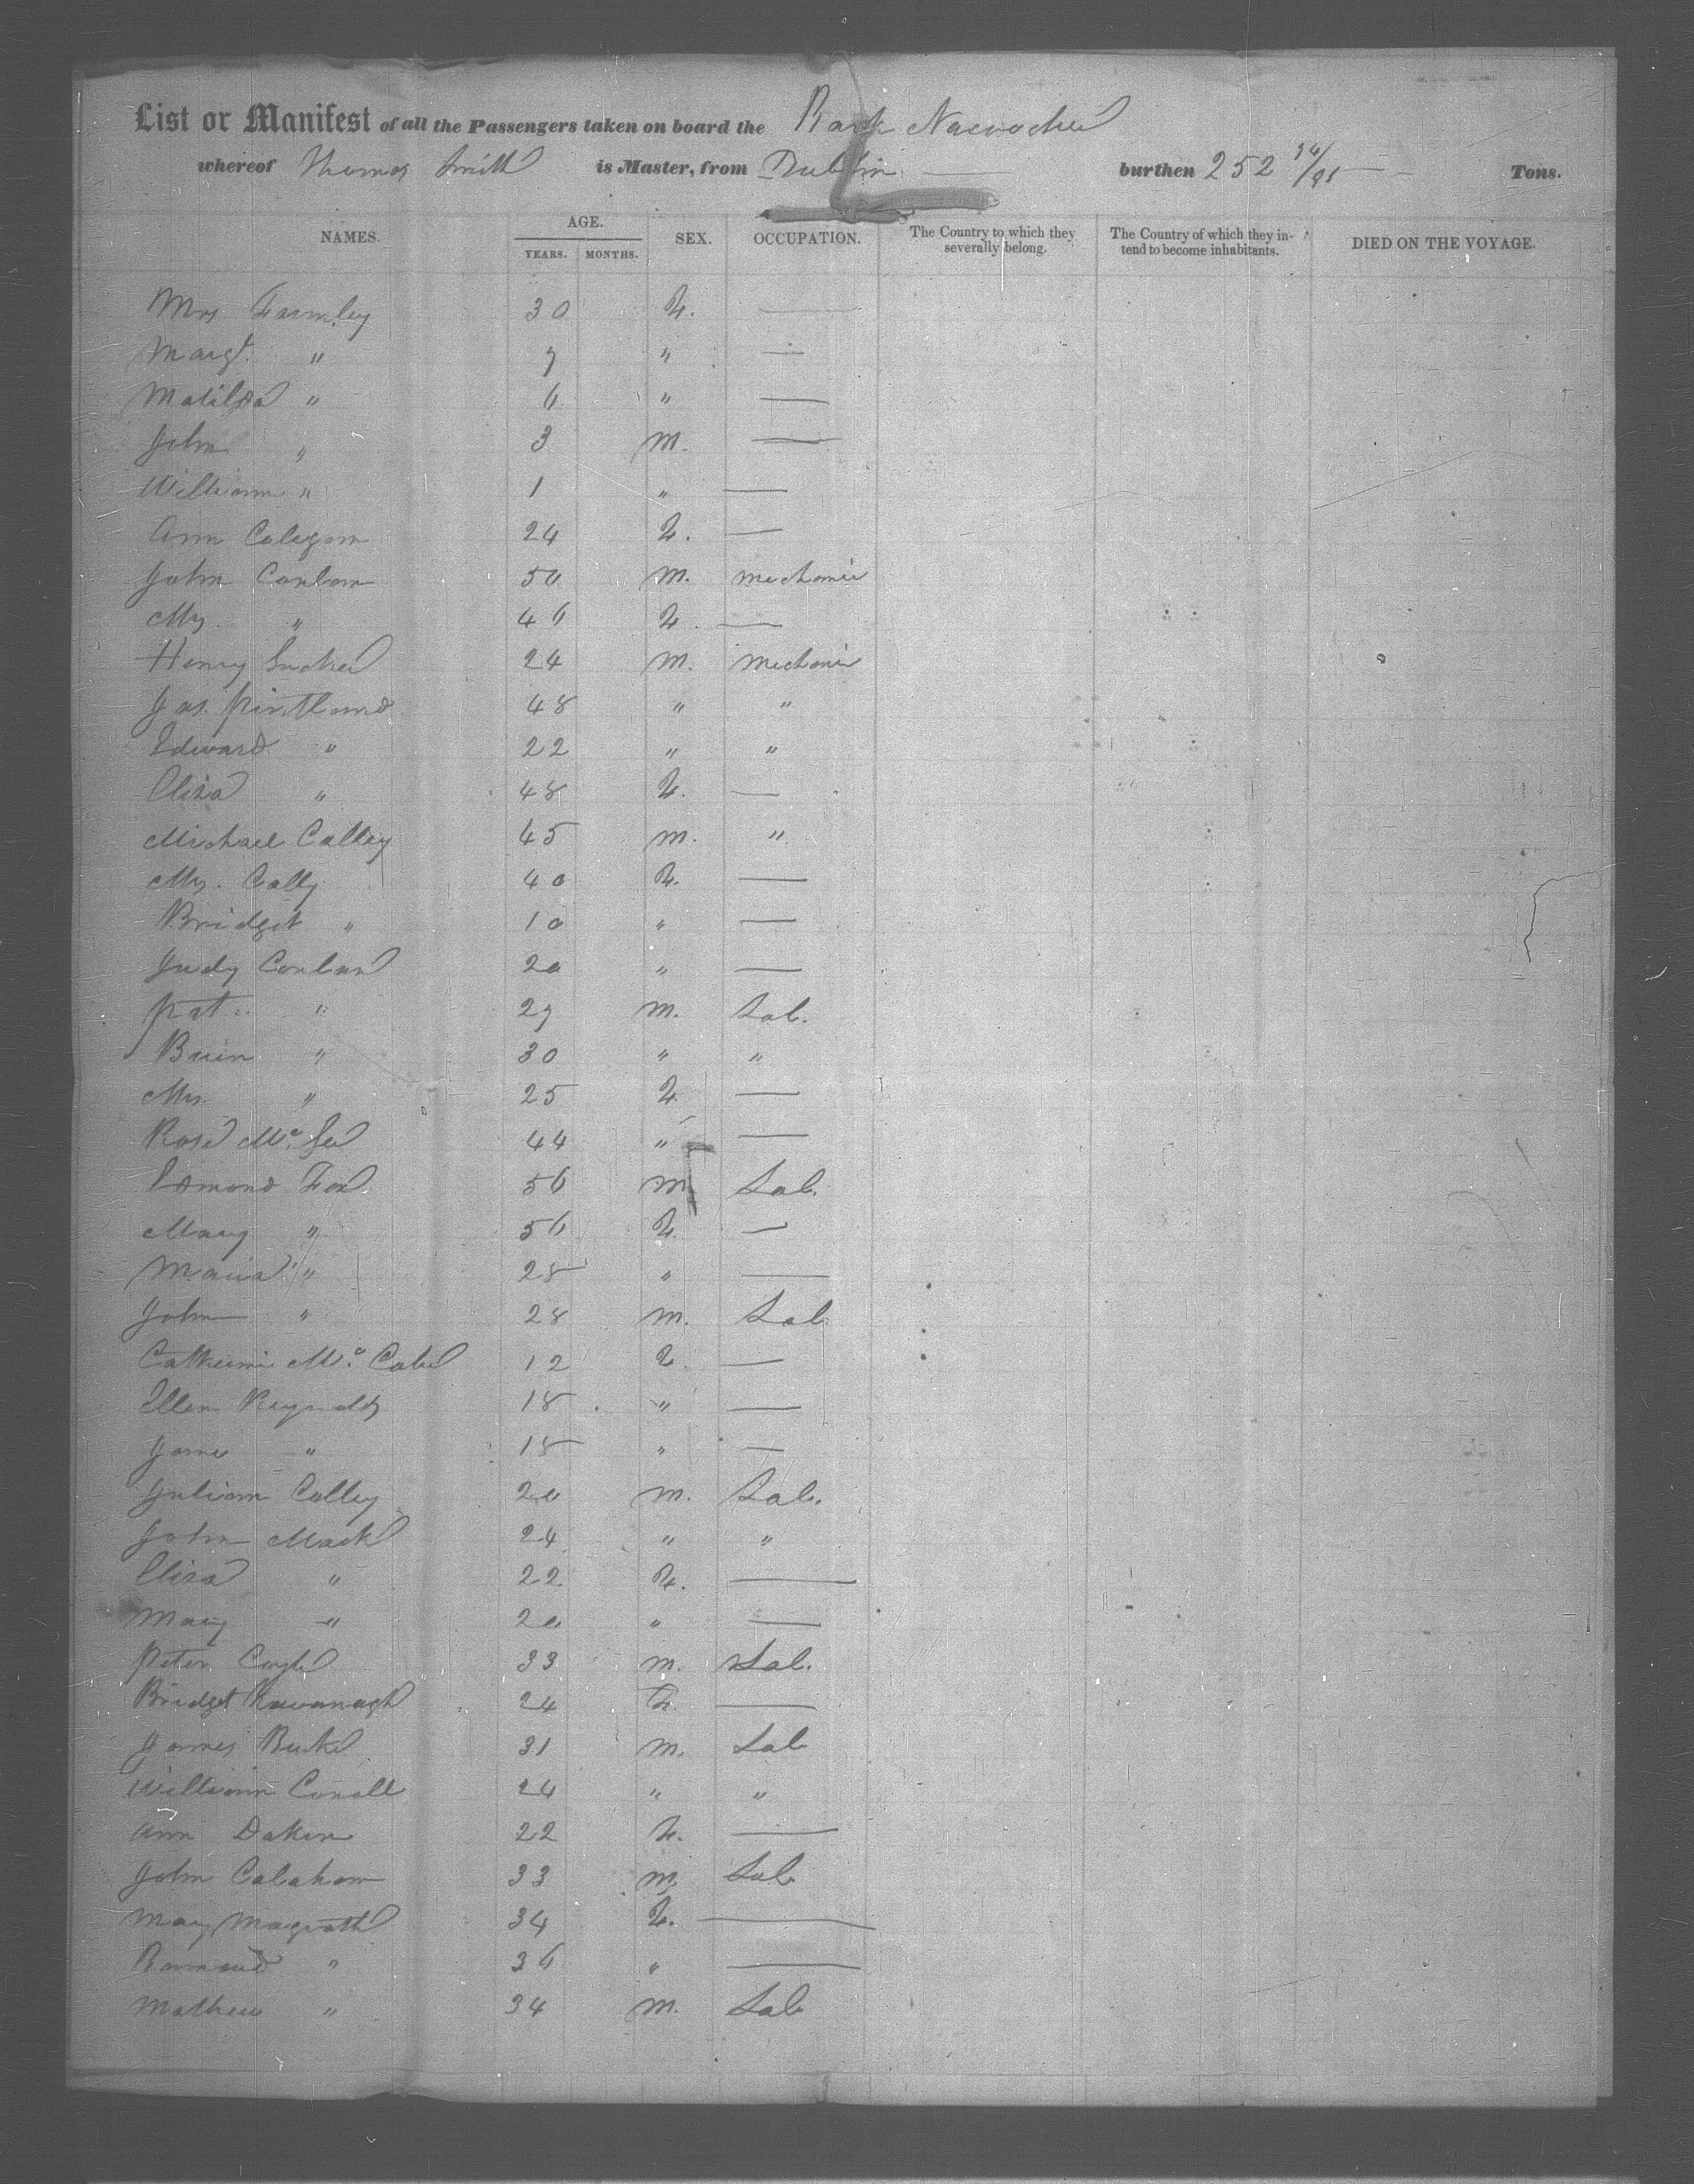 List or Manifest of all the Passengers taken on board the Bark
whereof Thomas Smith is Master, from Dublin — burthen 252 94/95 — Tons.
NAMES. AGE. YEARS. MONTHS. SEX. OCCUPATION. The Country to which they severally belong. The Country of which they intend to become inhabitants. DIED ON THE VOYAGE.
Mrs. Farmley 30 F. —
Margt. " 7 " —
Matilda " 6 " —
John " 3 M. —
William " 1 " —
Ann Calegam 24 F. —
John Conlan 50 M. Mechanic
Mrs. " 46 F. —
Henry 24 M. Mechanic
Jas. Pintland 48 " "
Edward " 22 " "
Eliza " 48 F. —
Michael Calley 45 M. "
Mrs. Cally 40 F. —
Bridget " 10 " —
Judy Conlan 20 " —
Pat. " 27 M. Lab.
" 30 " "
Mrs. " 25 F. —
Rose Mc. Gee 44 " —
Edmond Fox 56 M. Lab.
Mary " 56 F. —
Maria " 25 " —
John " 28 M. Lab.
Catherine Mc. Cabe 12 F. —
Ellen Reynolds 18 " —
Jane " 15 " —
Calley 20 M. Lab.
John Mack 24 " "
Eliza " 22 F. —
Mary " 20 " —
Peter Coyle 33 M. Lab.
Bridget Kavanagh 24 F. —
James Burke 31 M. Lab
William Conall 24 " "
Ann Daken 22 F. —
John Calaham 33 M. Lab.
Mary Magrath 34 F. —
" 36 " —
Mathew " 34 M. Lab